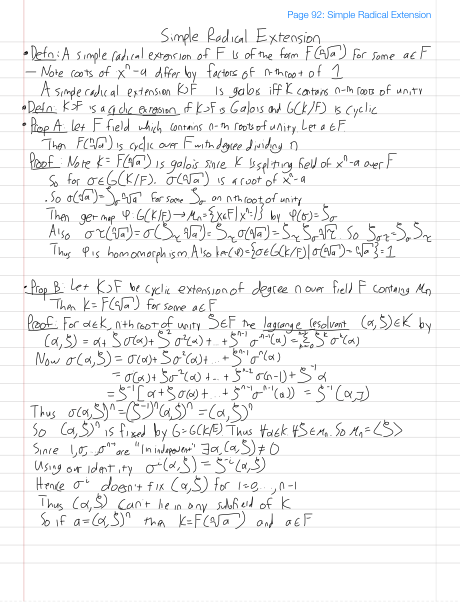 Page 92: Simple Radical Extension
Simple Radical Extension
• Defn: A simple radical extension of F is of the form F(ⁿ√a) for some a∈F
— Note roots of xⁿ-a differ by factors of n-th root of 1
A simple radical extension K⊃F is galois iff K contains n-th roots of unity
• Defn: K⊃F is a cyclic extension if K⊃F is Galois and G(K/F) is cyclic
• Prop A: Let F field which contains n-th roots of unity. Let a∈F.
Then F(ⁿ√a) is cyclic over F with degree dividing n
Proof: Note K=F(ⁿ√a) is galois since K is splitting field of xⁿ-a over F
So for σ∈G(K/F), σ(ⁿ√a) is a root of xⁿ-a
. So σ(ⁿ√a)=ζ_σ ⁿ√a for some ζ_σ an nth root of unity
Then get map φ:G(K/F)→μₙ={x∈F|xⁿ=1} by φ(σ)=ζ_σ
Also στ(ⁿ√a)=σ(ζ_τ ⁿ√a)=ζ_τ σ(ⁿ√a)=ζ_τ ζ_σ ⁿ√a So ζ_στ=ζ_σ ζ_τ
Thus φ is homomorphism Also ker(φ)={σ∈G(K/F)|σ(ⁿ√a)=ⁿ√a}=1
• Prop B: Let K⊃F be cyclic extension of degree n over field F containing μₙ
Then K=F(ⁿ√a) for some a∈F
Proof: For α∈K, nth root of unity ζ∈F the lagrange resolvent (α,ζ)∈K by
(α,ζ)=α+ζσ(α)+ζ²σ²(α)+...+ζⁿ⁻¹σⁿ⁻¹(α)=
Now σ(α,ζ)=σ(α)+ζσ²(α)+...+ζⁿ⁻¹σⁿ(α)
=σ(α)+ζσ²(α)+...+ζⁿ⁻²σ(n-1)+ζ⁻¹α
=ζ⁻¹[α+ζσ(α)+...+ζⁿ⁻¹σⁿ⁻¹(α)]=ζ⁻¹(α,ζ)
Thus σ(α,ζ)ⁿ=(ζ⁻¹)ⁿ(α,ζ)ⁿ=(α,ζ)ⁿ
So (α,ζ)ⁿ is fixed by G=G(K/F). Thus ∀α∈K ∀ζ∈μₙ. So μₙ=<ζ>
Since 1,σ,..σⁿ⁻¹ are "lin independent" ∃α,(α,ζ)≠0
Using our identity σⁱ(α,ζ)=ζ⁻ⁱ(α,ζ)
Hence σⁱ doesn't fix (α,ζ) for i=0,...,n-1
Thus (α,ζ) can't be in any subfield of K
So if a=(α,ζ)ⁿ then K=F(ⁿ√a) and a∈F